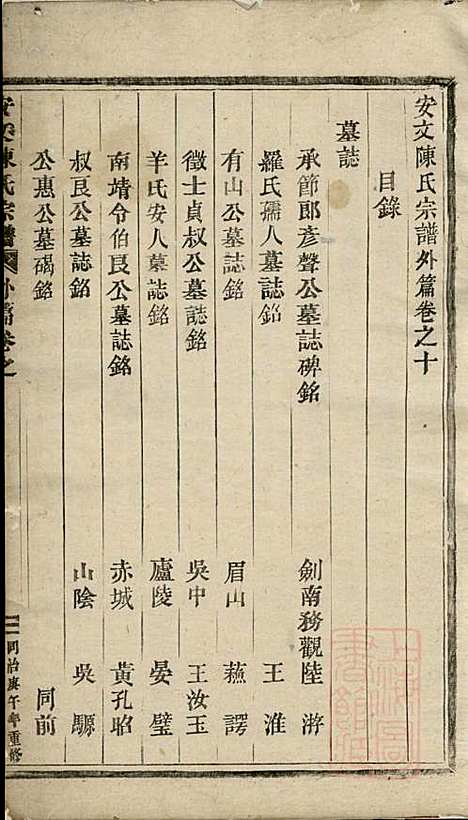 安文陳氏宗譜外篇卷之十
目錄
墓誌
承節郎彥聲公墓誌碑銘 劍南務觀陸游
羅氏孺人墓誌銘 王淮
有山公墓誌銘 眉山蘇諤
徵士貞叔公墓誌銘 吳中王汝玉
羊氏安人墓誌銘 廬陵晏璧
南靖令伯良公墓誌銘 赤城黃孔昭
叔良公墓誌銘 山陰吳驥
公惠公墓碣銘 同前
安文陳氏宗譜 外篇卷之
同治庚午年重修